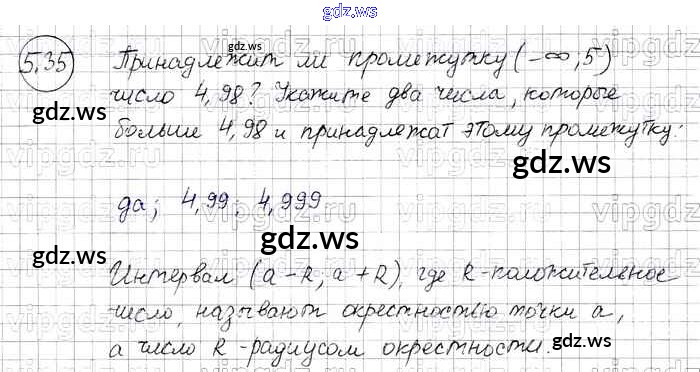 gdz.ws
5.35 Принадлежит ли промежутку (-∞; 5)
gdz.ws
число 4,98? Укажите два числа, которые
gdz.ws
больше 4,98 и принадлежат этому промежутку:
gdz.ws
да; 4,99; 4,999
vipgdz.ru
gdz.ws
gdz.ws
Интервал (a-R, a+R), где R-положительное
число, называют окрестностью точки a,
gdz.ws
а число R - радиусом окрестности.
gdz.ws